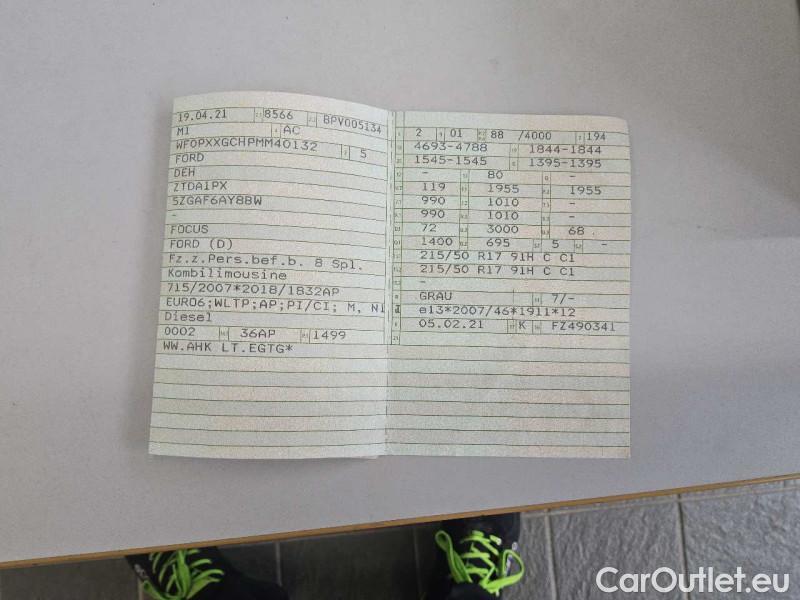 19.04.21 8566 BPV005134
M1 AC
WF0PXXGCHPMM40132 5
FORD
DEH
ZTDA1PX
5ZGAF6AY8BW
-
FOCUS
FORD (D)
Fz.z.Pers.bef.b. 8 Spl.
Kombilimousine
715/2007*2018/1832AP
EURO6;WLTP;AP;PI/CI; M, N1 I
Diesel
0002 36AP 1499
WW.AHK LT.EGTG*
2 01 88 /4000 194
4693-4788 1844-1844
1545-1545 1395-1395
- 80 -
119 1955 1955
990 1010 -
990 1010 -
72 3000 68
1400 695 5 -
215/50 R17 91H C C1
215/50 R17 91H C C1
-
GRAU 7/-
e13*2007/46*1911*12
05.02.21 K FZ490341
CarOutlet.eu